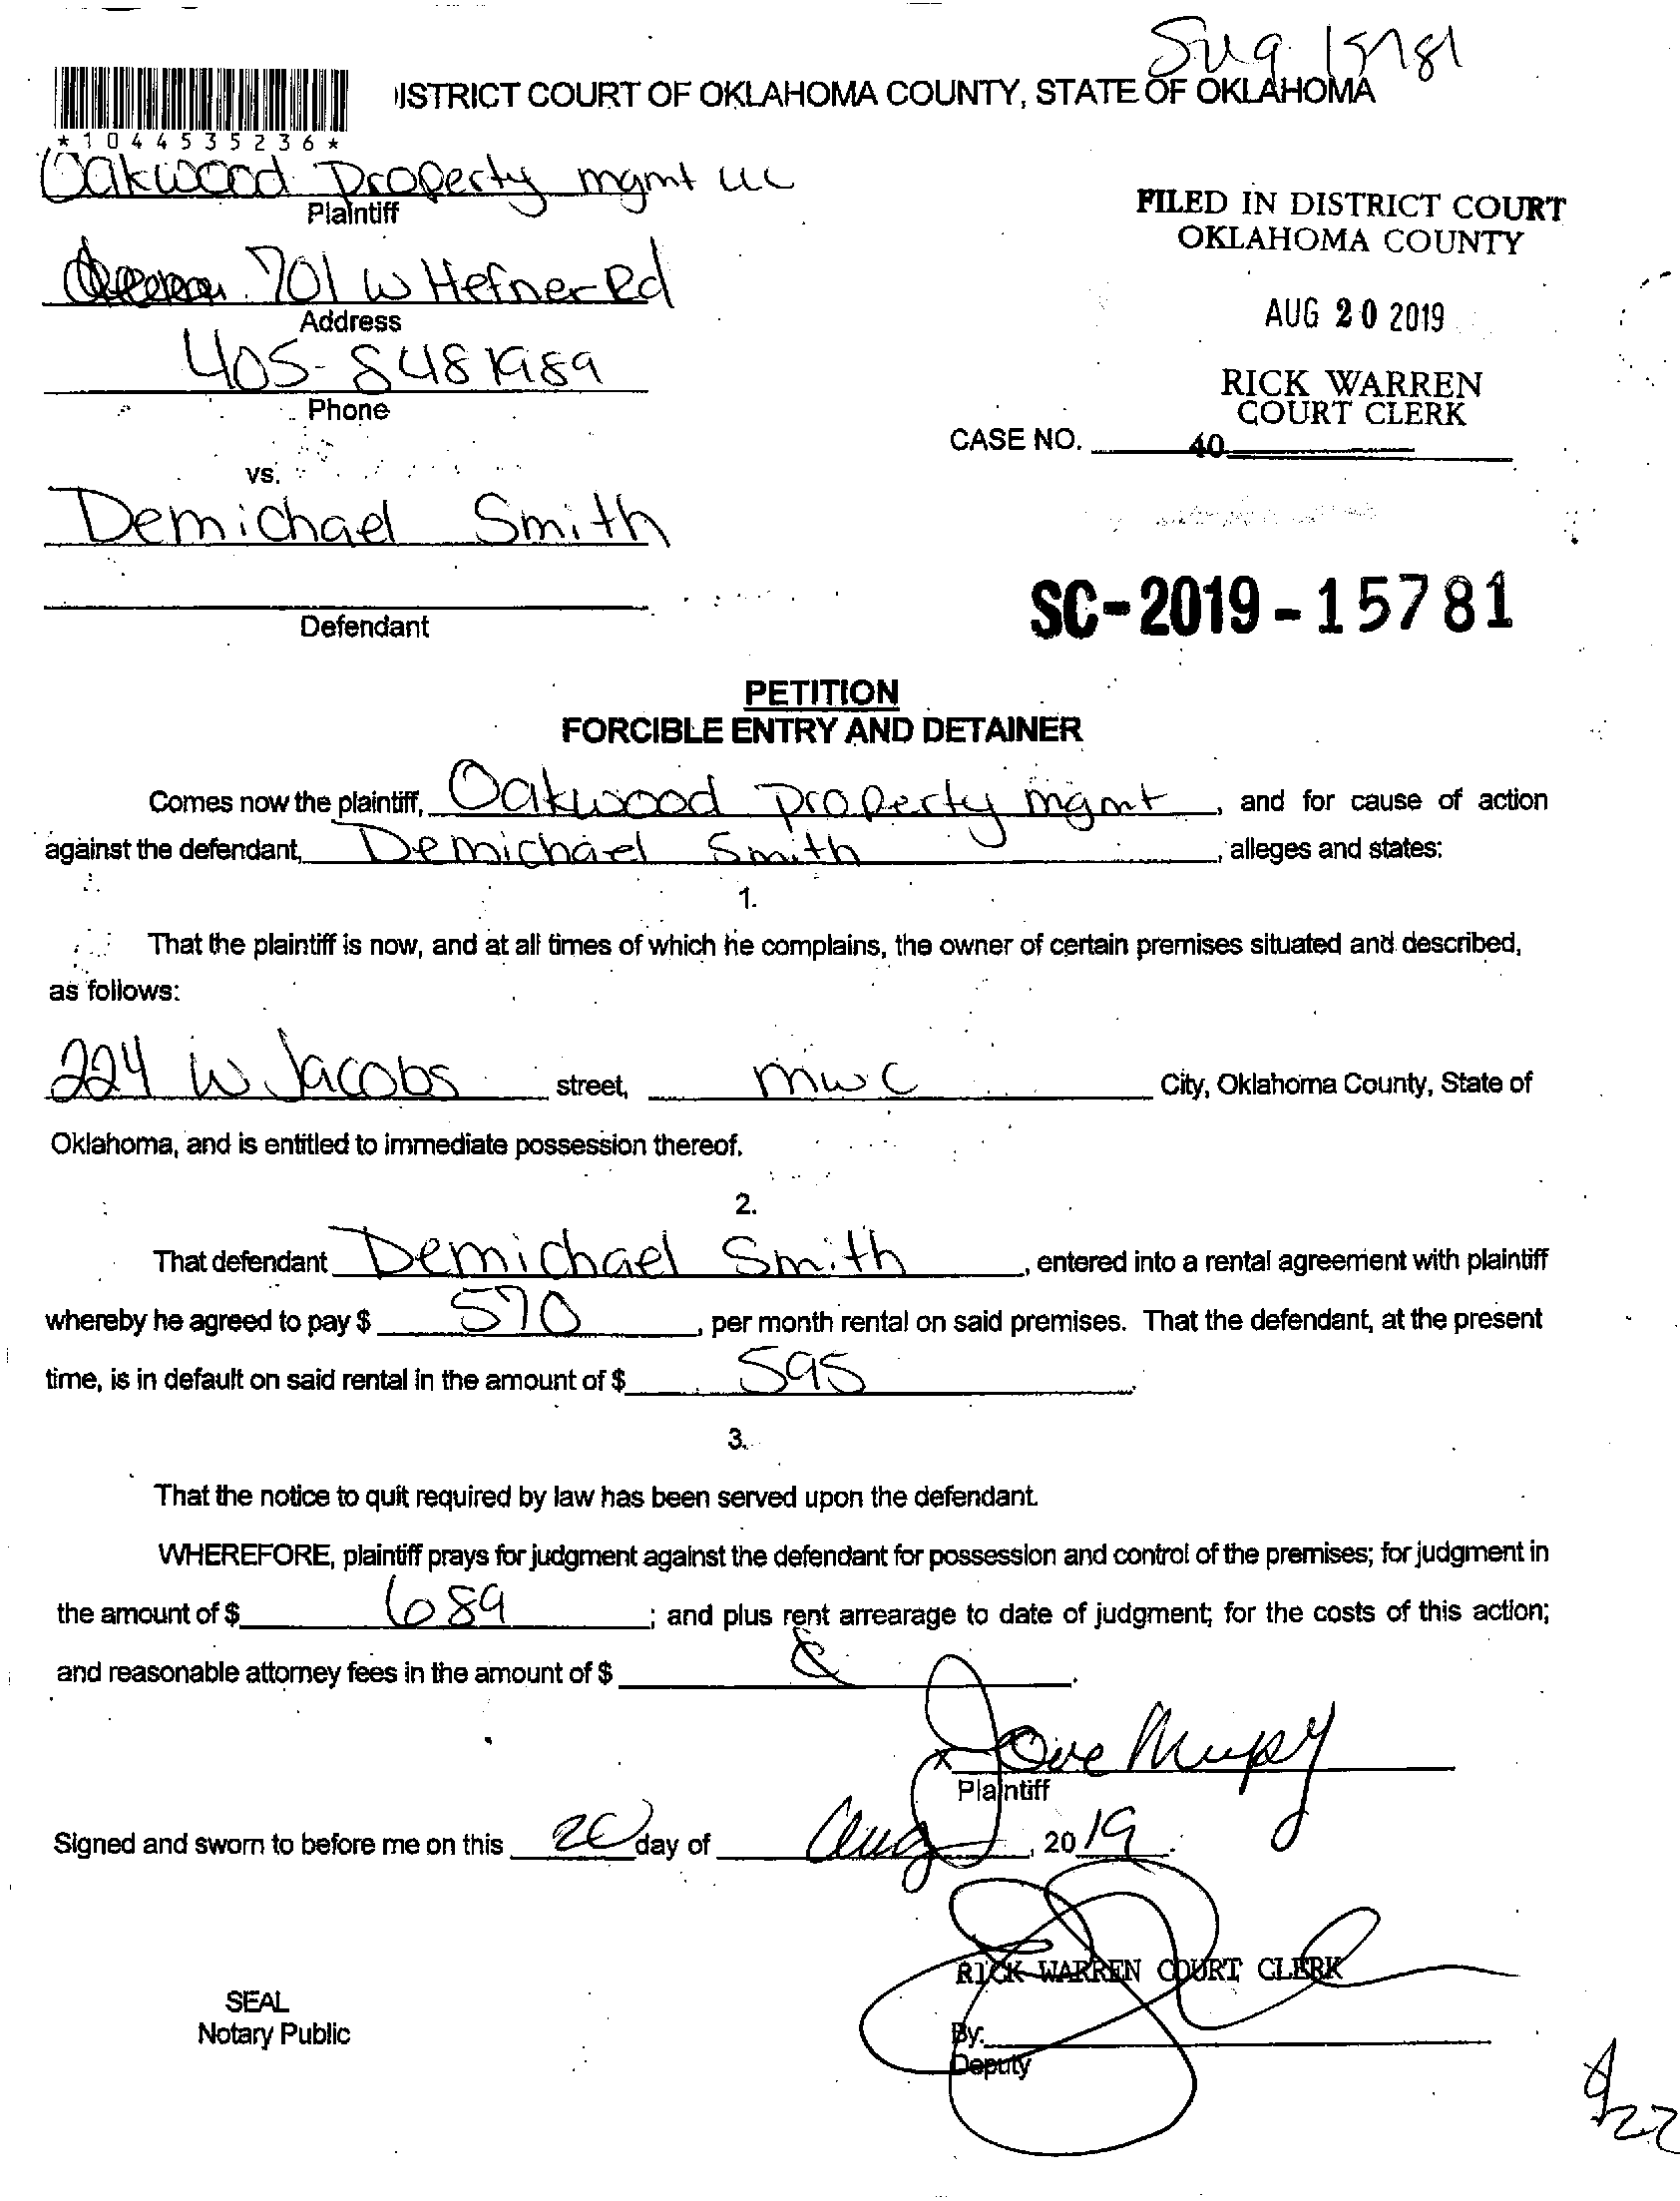 15781
ISTRICT COURT OF OKLAHOMA COUNTY, STATE OF OKLAHOMA
*1044535236*
Oakwood Property mgmt LLC
Plaintiff
FILED IN DISTRICT COURT
OKLAHOMA COUNTY
701 W Hefner Rd
Address
AUG 20 2019
405-848 1989
Phone
RICK WARREN
COURT CLERK
CASE NO. 40
vs.
Demichael Smith
Defendant
SC-2019-15781
PETITION
FORCIBLE ENTRY AND DETAINER
Comes now the plaintiff, Oakwood Property mgmt, and for cause of action
against the defendant, Demichael Smith, alleges and states:
1.
That the plaintiff is now, and at all times of which he complains, the owner of certain premises situated and described,
as follows:
224 W Jacobs street, mwc City, Oklahoma County, State of
Oklahoma, and is entitled to immediate possession thereof.
2.
That defendant Demichael Smith, entered into a rental agreement with plaintiff
whereby he agreed to pay $ 570, per month rental on said premises. That the defendant, at the present
time, is in default on said rental in the amount of $ 595.
3.
That the notice to quit required by law has been served upon the defendant.
WHEREFORE, plaintiff prays for judgment against the defendant for possession and control of the premises; for judgment in
the amount of $ 689; and plus rent arrearage to date of judgment; for the costs of this action;
and reasonable attorney fees in the amount of $.
x
Plaintiff
Signed and sworn to before me on this 20 day of Aug, 2019.
RICK WARREN COURT CLERK
SEAL
Notary Public
By:
Deputy